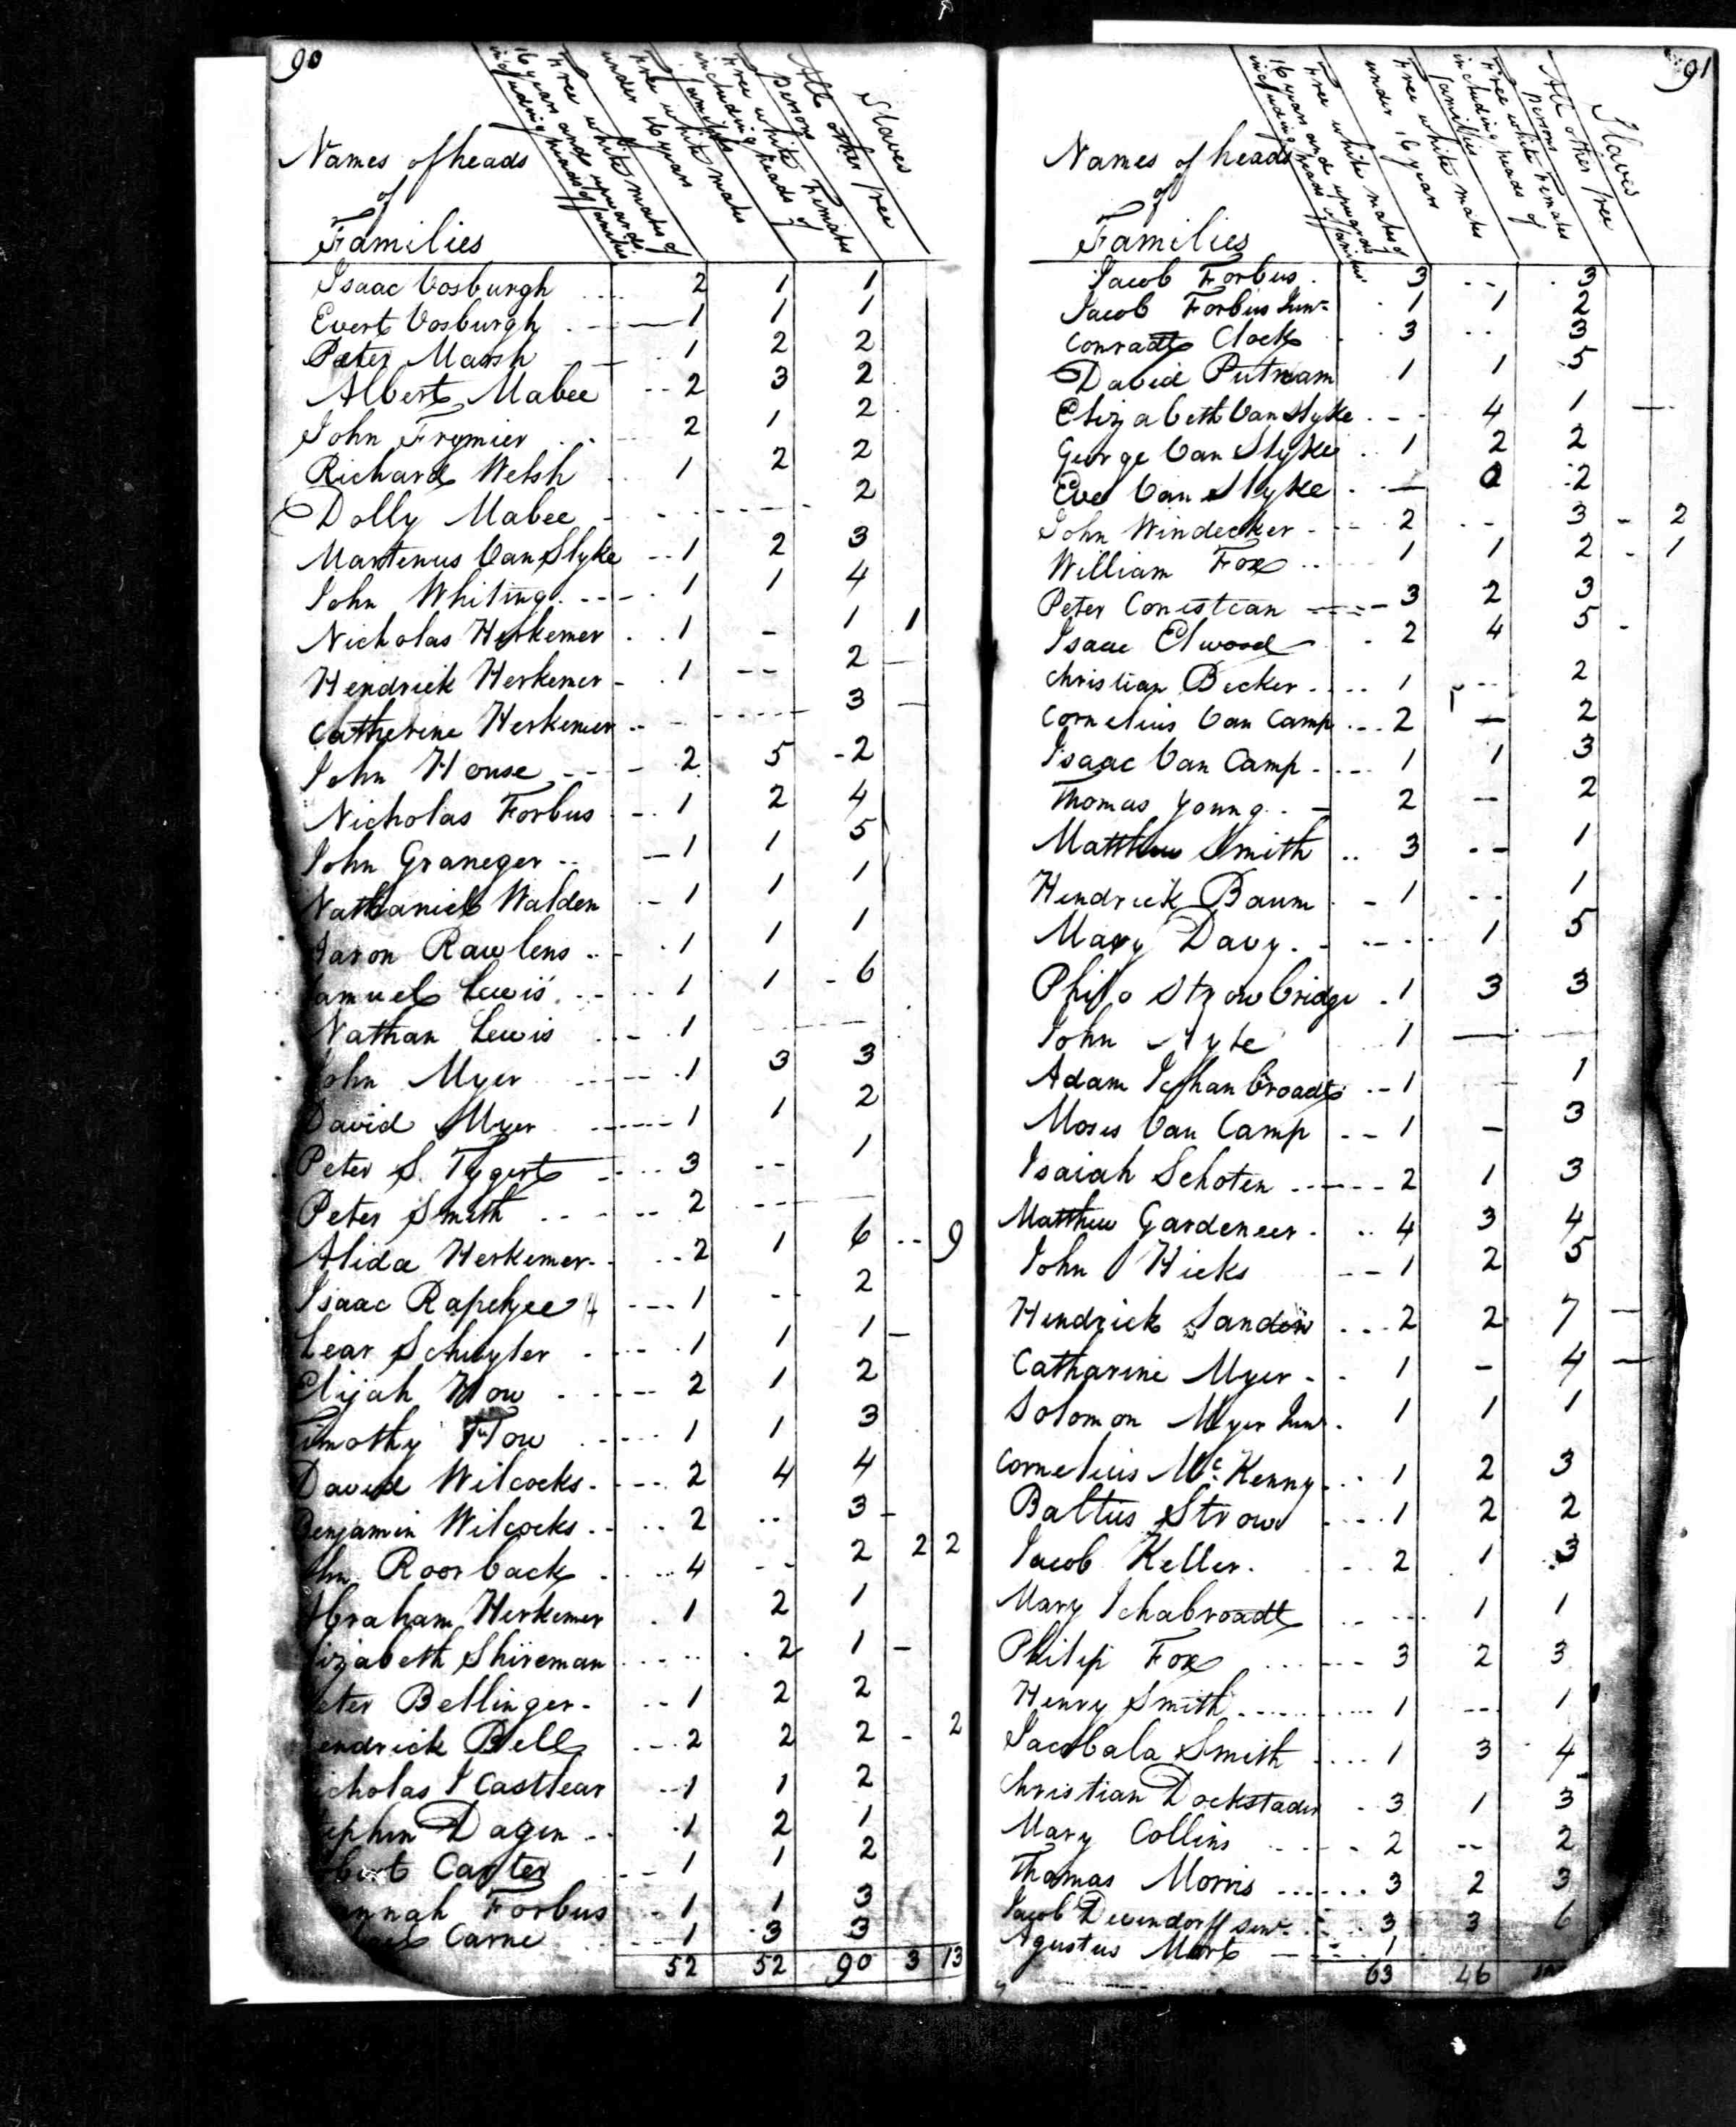 90
Names of heads
of
Families
Free white males of
16 years and upwards
including heads of families
Free white males
under 16 years
Free white Females
including heads of
families
All other free
persons
Slaves
Isaac Vosburgh .... 2 1 1
Evert Vosburgh . - — 1 1 1
Peter Marsh — 1 2 2
Albert Mabee -- 2 3 2
John Frymier .. 2 1 2
Richard Welsh . 1 2 2
Dolly Mabee - - - - 2
Martenus Van Slyke -- 1 2 3
John Whiting. - - - . 1 1 4
Nicholas Herkemer . . 1 - 1 1
Hendrick Herkemer - . 1 -- 2 —
Catherine Herkemer .. - ----- 3 —
John House - - - 2 5 - 2
Nicholas Forbus -. 1 2 4
John Graneger .. — 1 1 5
Nathaniel Walden -- 1 1 1
Aaron Rawlens .. - . 1 1 1
amuel Lewis . -- ... 1 1 - 6
Nathan Lewis . - 1 --- —
John Myer ------- 1 3 3
David Myer ------ 1 1 2
Peter S. Tygert - ... 3 -- 1
Peter Smith .. - - -- 2 --- —
Alida Herkemer- . . - 2 1 6 -- 9
Isaac Rapelyee --- . 1 -- 2
Lear Schuyler - --- 1 1 1 —
Elijah How . ---- 2 1 2
Timothy How ----- 1 1 3
David Wilcocks- --- . 2 4 4
Benjamin Wilcocks . . .. 2 .. 3 -
ohn Roorback . ... 4 -- 2 2 2
Abraham Herkemer . 1 2 1
lizabeth Shireman .... .. . 2 1 -
eter Bellinger- -- 1 2 2
endrick Bell . - - 2 2 2 - 2
icholas I Castlear -- 1 1 2
ephen Dagen -- . 1 2 1
bert Carter -- 1 1 2
annah Forbus -- 1 1 3
Carne --- 1 3 3
52 52 90 3 13
91
Names of heads
of
Families
Free white males of
16 years and upwards
including heads of families
Free white males
under 16 years
Free white Females
including heads of
families
All other free
persons
Slaves
Jacob Forbus . 3 -- . 3
Jacob Forbus Junr . 1 1 2
Conradt Clock . 3 .. 3
David Putnam 1 1 5
Elizabeth Van Slyke . - - 4 1 —
George Van Slyke .. 1 2 2
Eve Van Slyke . — 2
John Windecker - - -- 2 .- 3 - 2
William Fox .. .... 1 1 2 - 1
Peter Conestean ----- 3 2 3
Isaac Elwood - . 2 4 5 -
Christian Becker - ... 1 --- 2
Cornelius Van Camp ... 2 — 2
Isaac Van Camp - --- 1 1 3
Thomas Young . . — 2 -- 2
Matthew Smith .. 3 -- 1
Hendrick Baum . - 1 -- 1
Mary Davy . - ---- 1 5
Philo Strowbridge . 1 3 3
John .. 1 — —
Adam -- 1 1
Moses Van Camp -- 1 — 3
Isaiah Schoten ------ 2 1 3
Matthew Gardeneer . .. 4 3 4
John Hicks -- 1 2 5
Hendrick ... 2 2 7 —
Catharine Myer - . 1 - 4 —
Solomon Myer Junr . 1 1 1
Cornelius Mc Kenny . . 1 2 3
Baltus Strow ---- 1 2 2
Jacob Keller . -- 2 1 3
Mary Ichabroadt -- --- 1 1
Philip Fox ... --- 3 2 3
Henry Smith ......... 1 --- 1
Smith .... 1 3 4
Christian Dockstader . 3 1 3
Mary Collins ... - 2 -- 2
Thomas Morris ....... 3 2 3
Jacob Devendorff Senr - . 3 3 6
Agustus — - 1
63 46